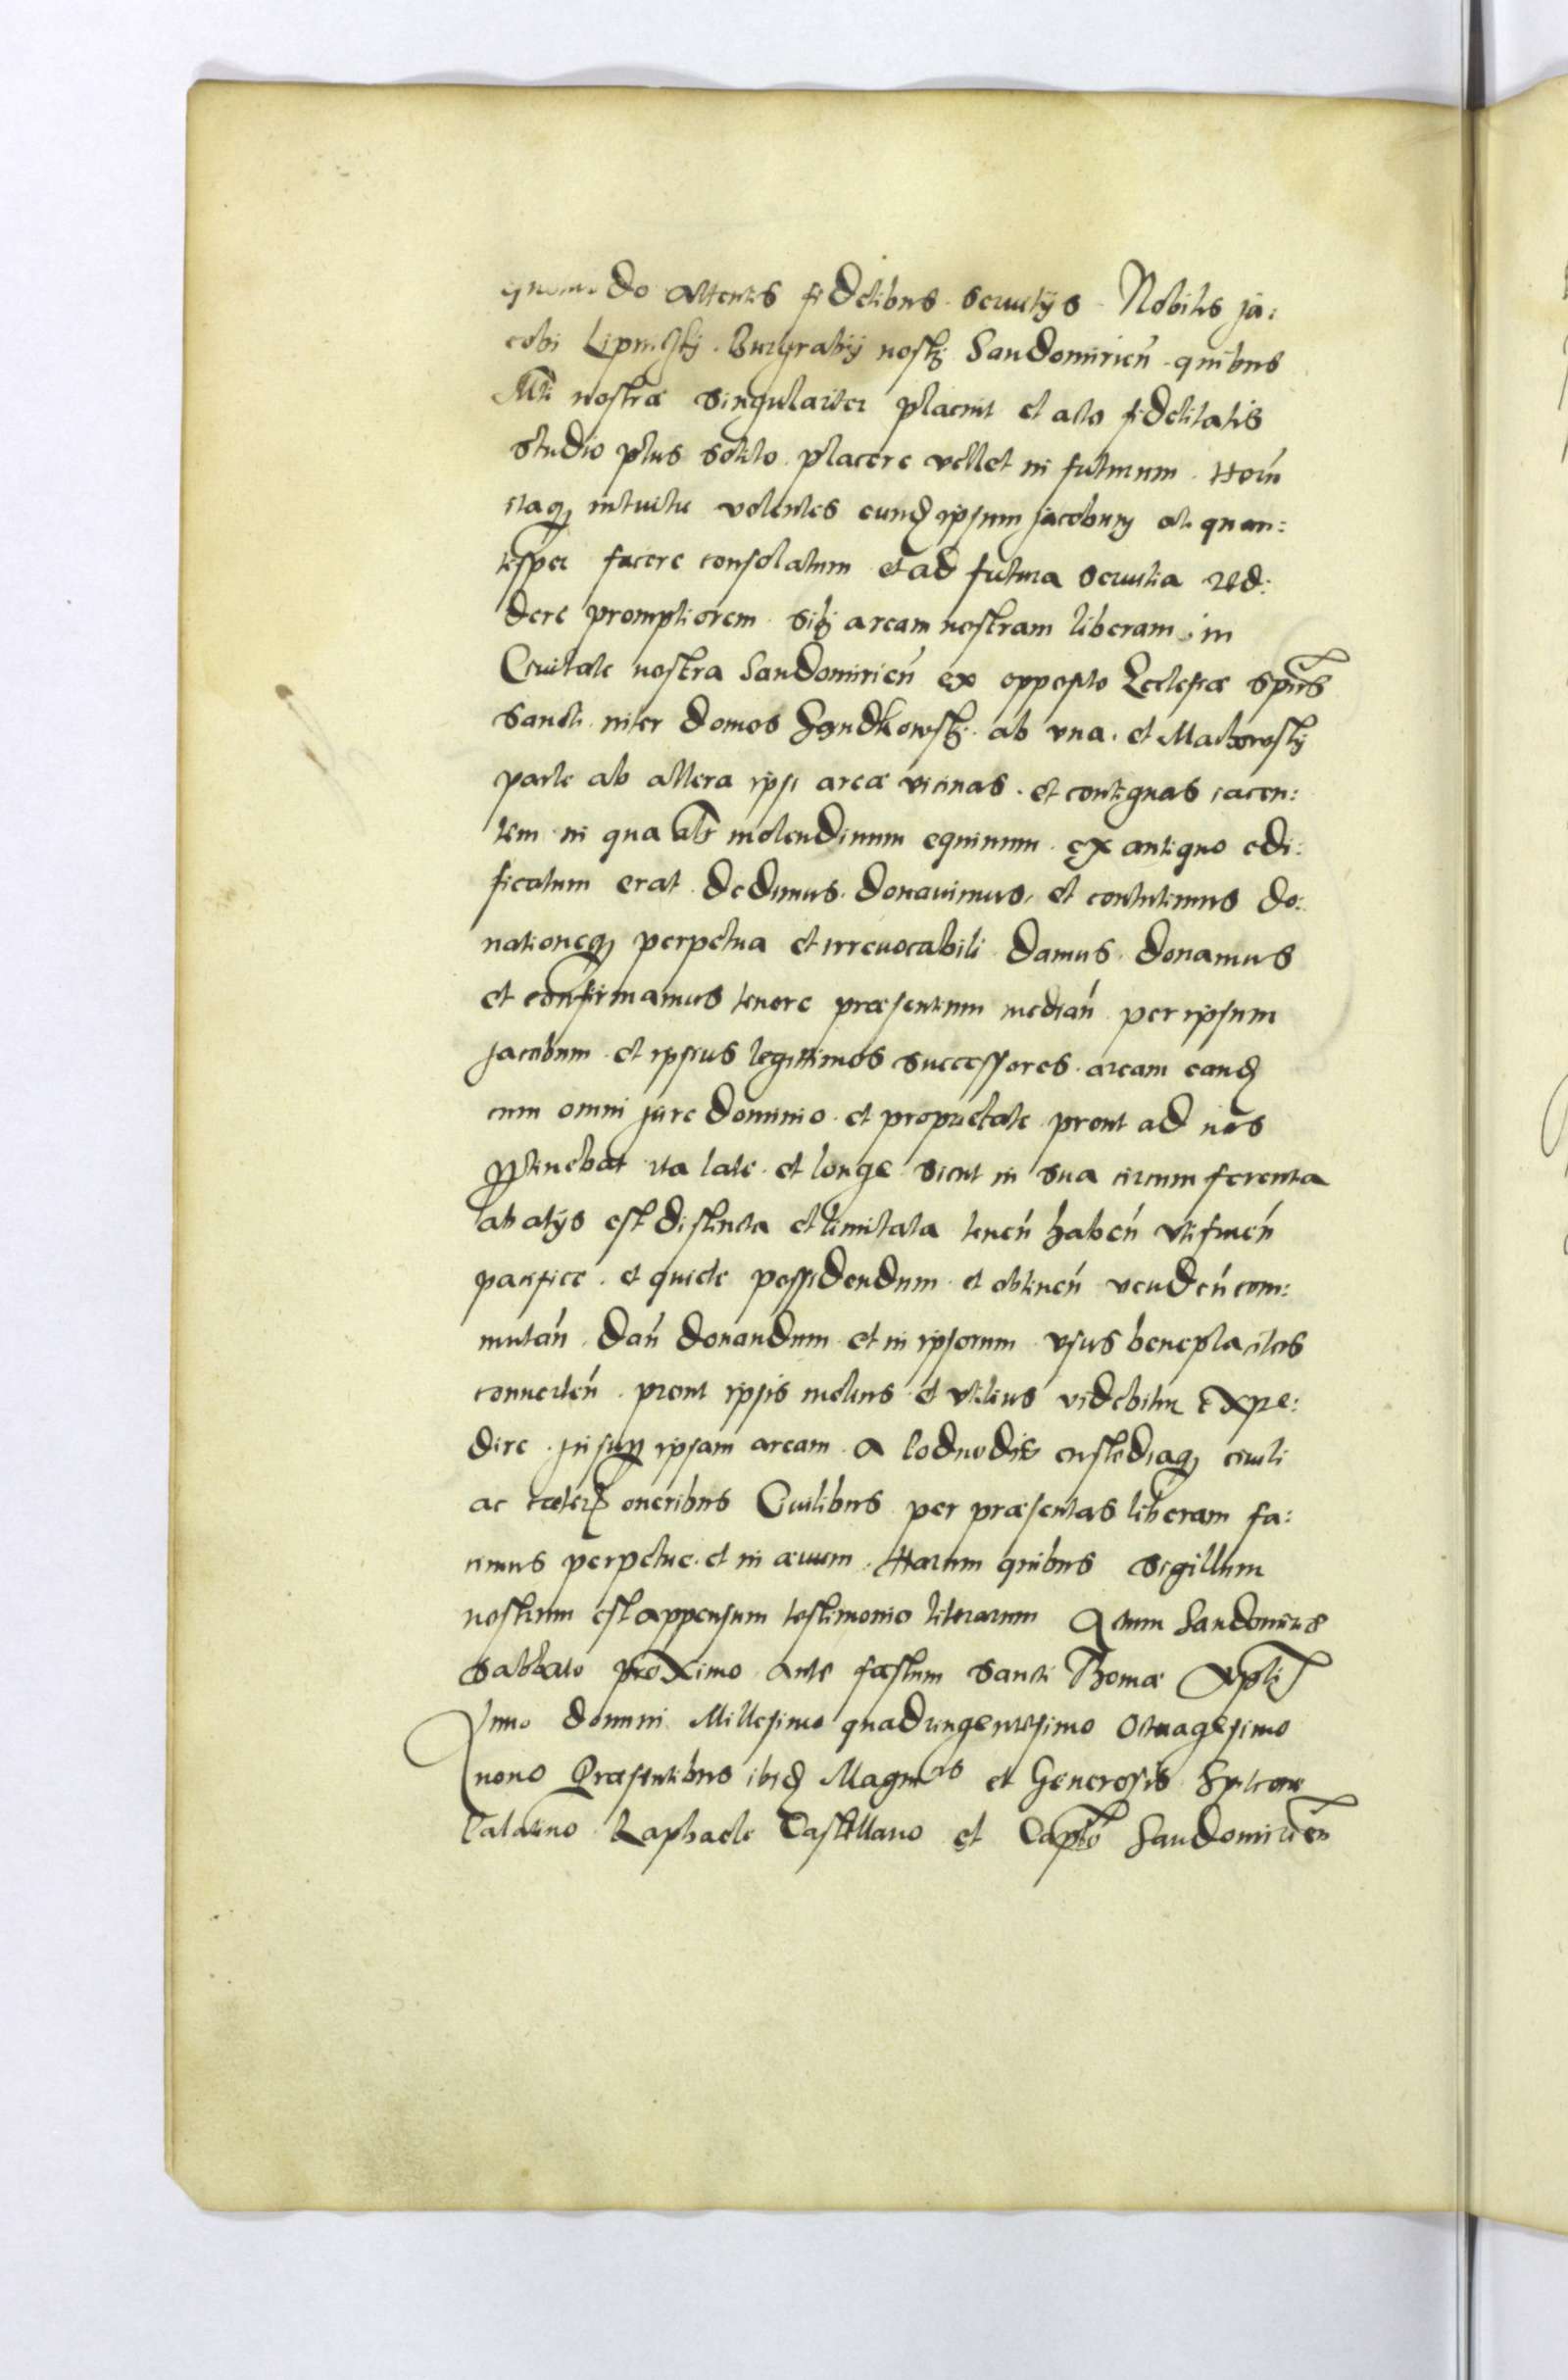 quomodo attentis fidelibus seruitijs Nobilis Ja:
cobi Lipnisky Burgrabij nostrj Sandomirien̄ quibus
Mti nostræ singulariter placuit et acto fidelitatis
studio plus solito placere vellet in futurum. Horū
itaq̢ intuitu volentes eund ipsum Jacobum ali quan:
tisper facere consolatum et ad futura seruitia red:
dere promptiorem sibj aream nostram liberam in
Ciuitate nostra Sandomirien̄ ex opposito Ecclesiæ Sp̄us
Sancti inter domos ab vna. et
parte ab altera ipsi areæ vicinas. et contiguas iacen:
tem in qua als molendinum equinum ex antiquo edi:
ficatum erat dedimus. donauimus, et contulimus do:
nationeq̢ perpetua et irreuocabili damus donamus
et confirmamus tenore præsentium median̄ per ipsum
Jacobum et ipsius legittimos successores. aream eand
cum omni jure dominio et proprietate prout ad nos
ꝑtinebat ita late et longe sicut in sua circumferentia
ab alijs est distincta et limitata tenen̄ haben̄ vtifruen̄
pacifice. et quiete possidendum et obtinen̄ venden̄ com:
mutan̄ dan̄ donandum et in ipsorum vsus beneplacitos
conuerten̄ prout ipsis melius et vtilius videbitur expe:
dire. Insuꝑ ipsam aream a custodiaq̢ ciuili
ac cæterꝭ oneribus Ciuilibus per præsentas liberam fa:
cimus perpetue et in æuum. Harum quibus sigillum
nostrum est appensum testimonio literarum Actum Sandomiriæ
Sabbato proximo ante fæstum Sancti Thomæ Apli
Anno domini Millesimo quadringentesimo Octuagesimo
nono Præsentibus ibid Magnᶜⁱˢ et Generosis Spitcone
Palatino Raphaele Castellano et Capťo Sandomirien